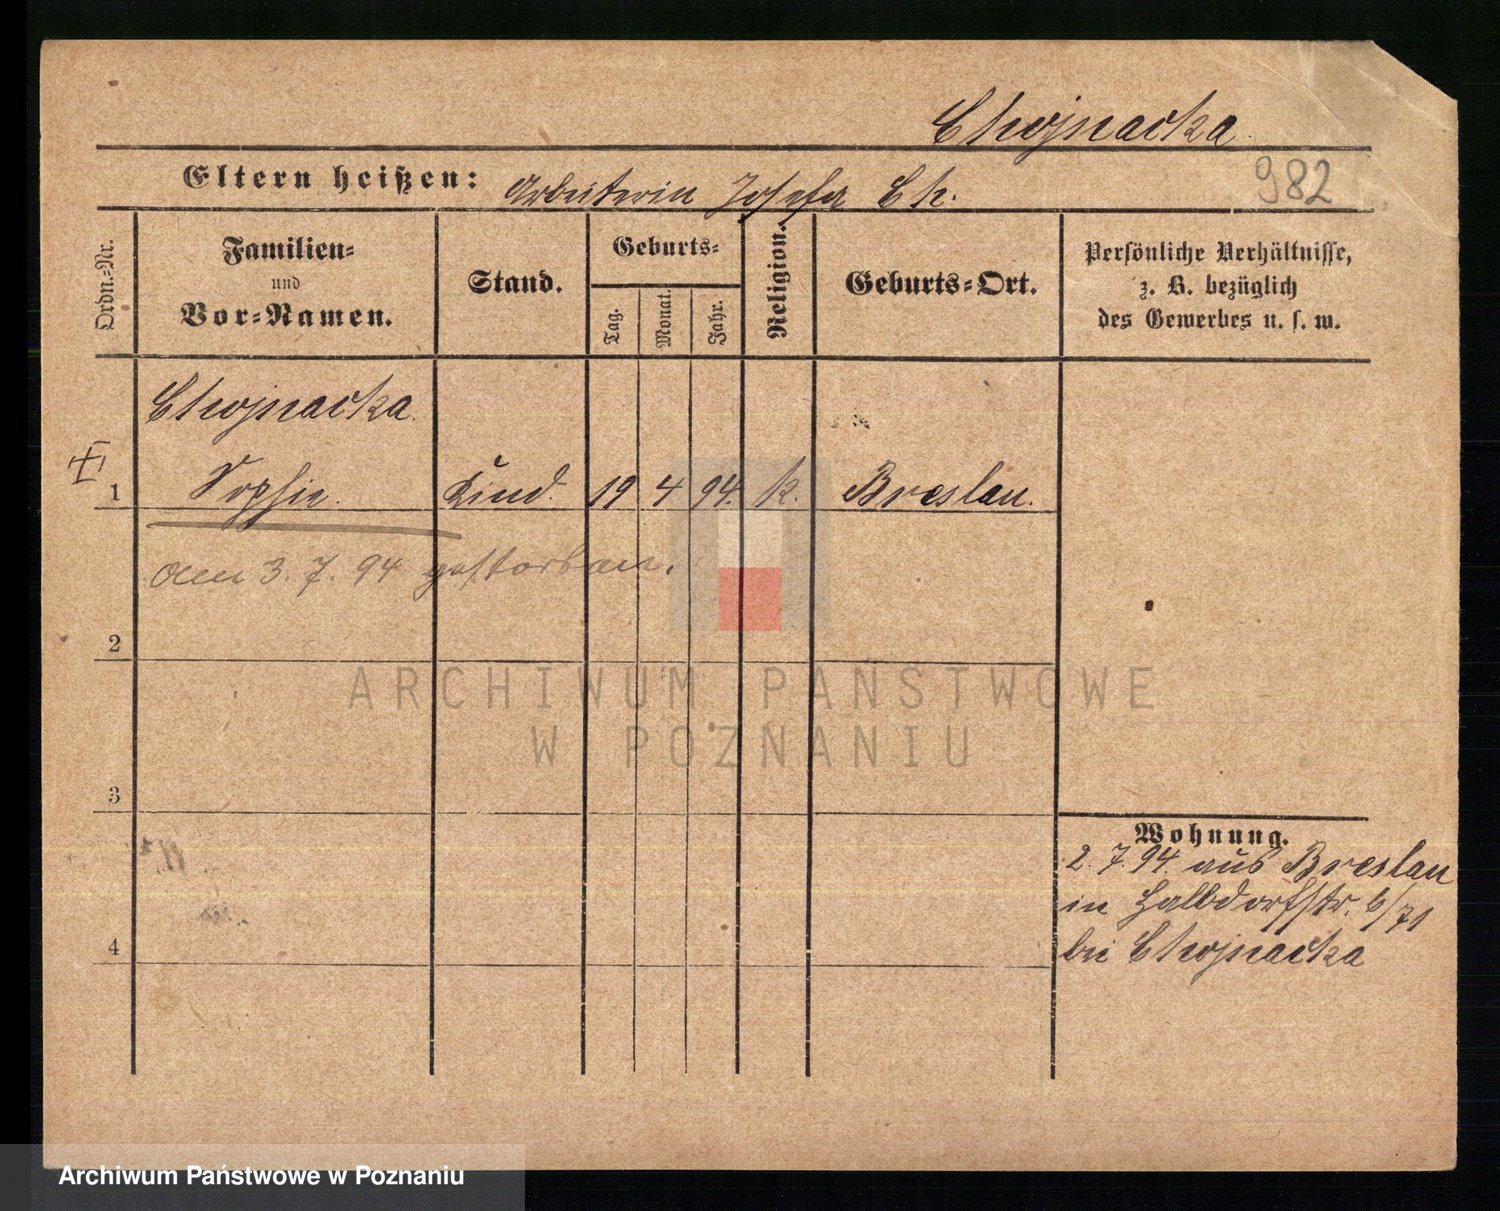 Chojnacka.
982
Eltern heißen: Arbeiterin Josefa Ch.
Ordn.-Nr.
Familien-
und
Vor-Namen.
Stand.
Geburts-
Tag.
Monat.
Jahr.
Religion.
Geburts-Ort.
Persönliche Verhältnisse,
z. B. bezüglich
des Gewerbes u. s. w.
Chojnacka.
1 Sophie. Kind. 19 4 94. k. Breslau.
am 3. 7. 94 gestorben.
2
ARCHIWUM PAŃSTWOWE
W POZNANIU
3
Wohnung.
2. 7. 94. aus Breslau
in Halbdorfstr. 6/71
bei Chojnacka
4
Archiwum Państwowe w Poznaniu